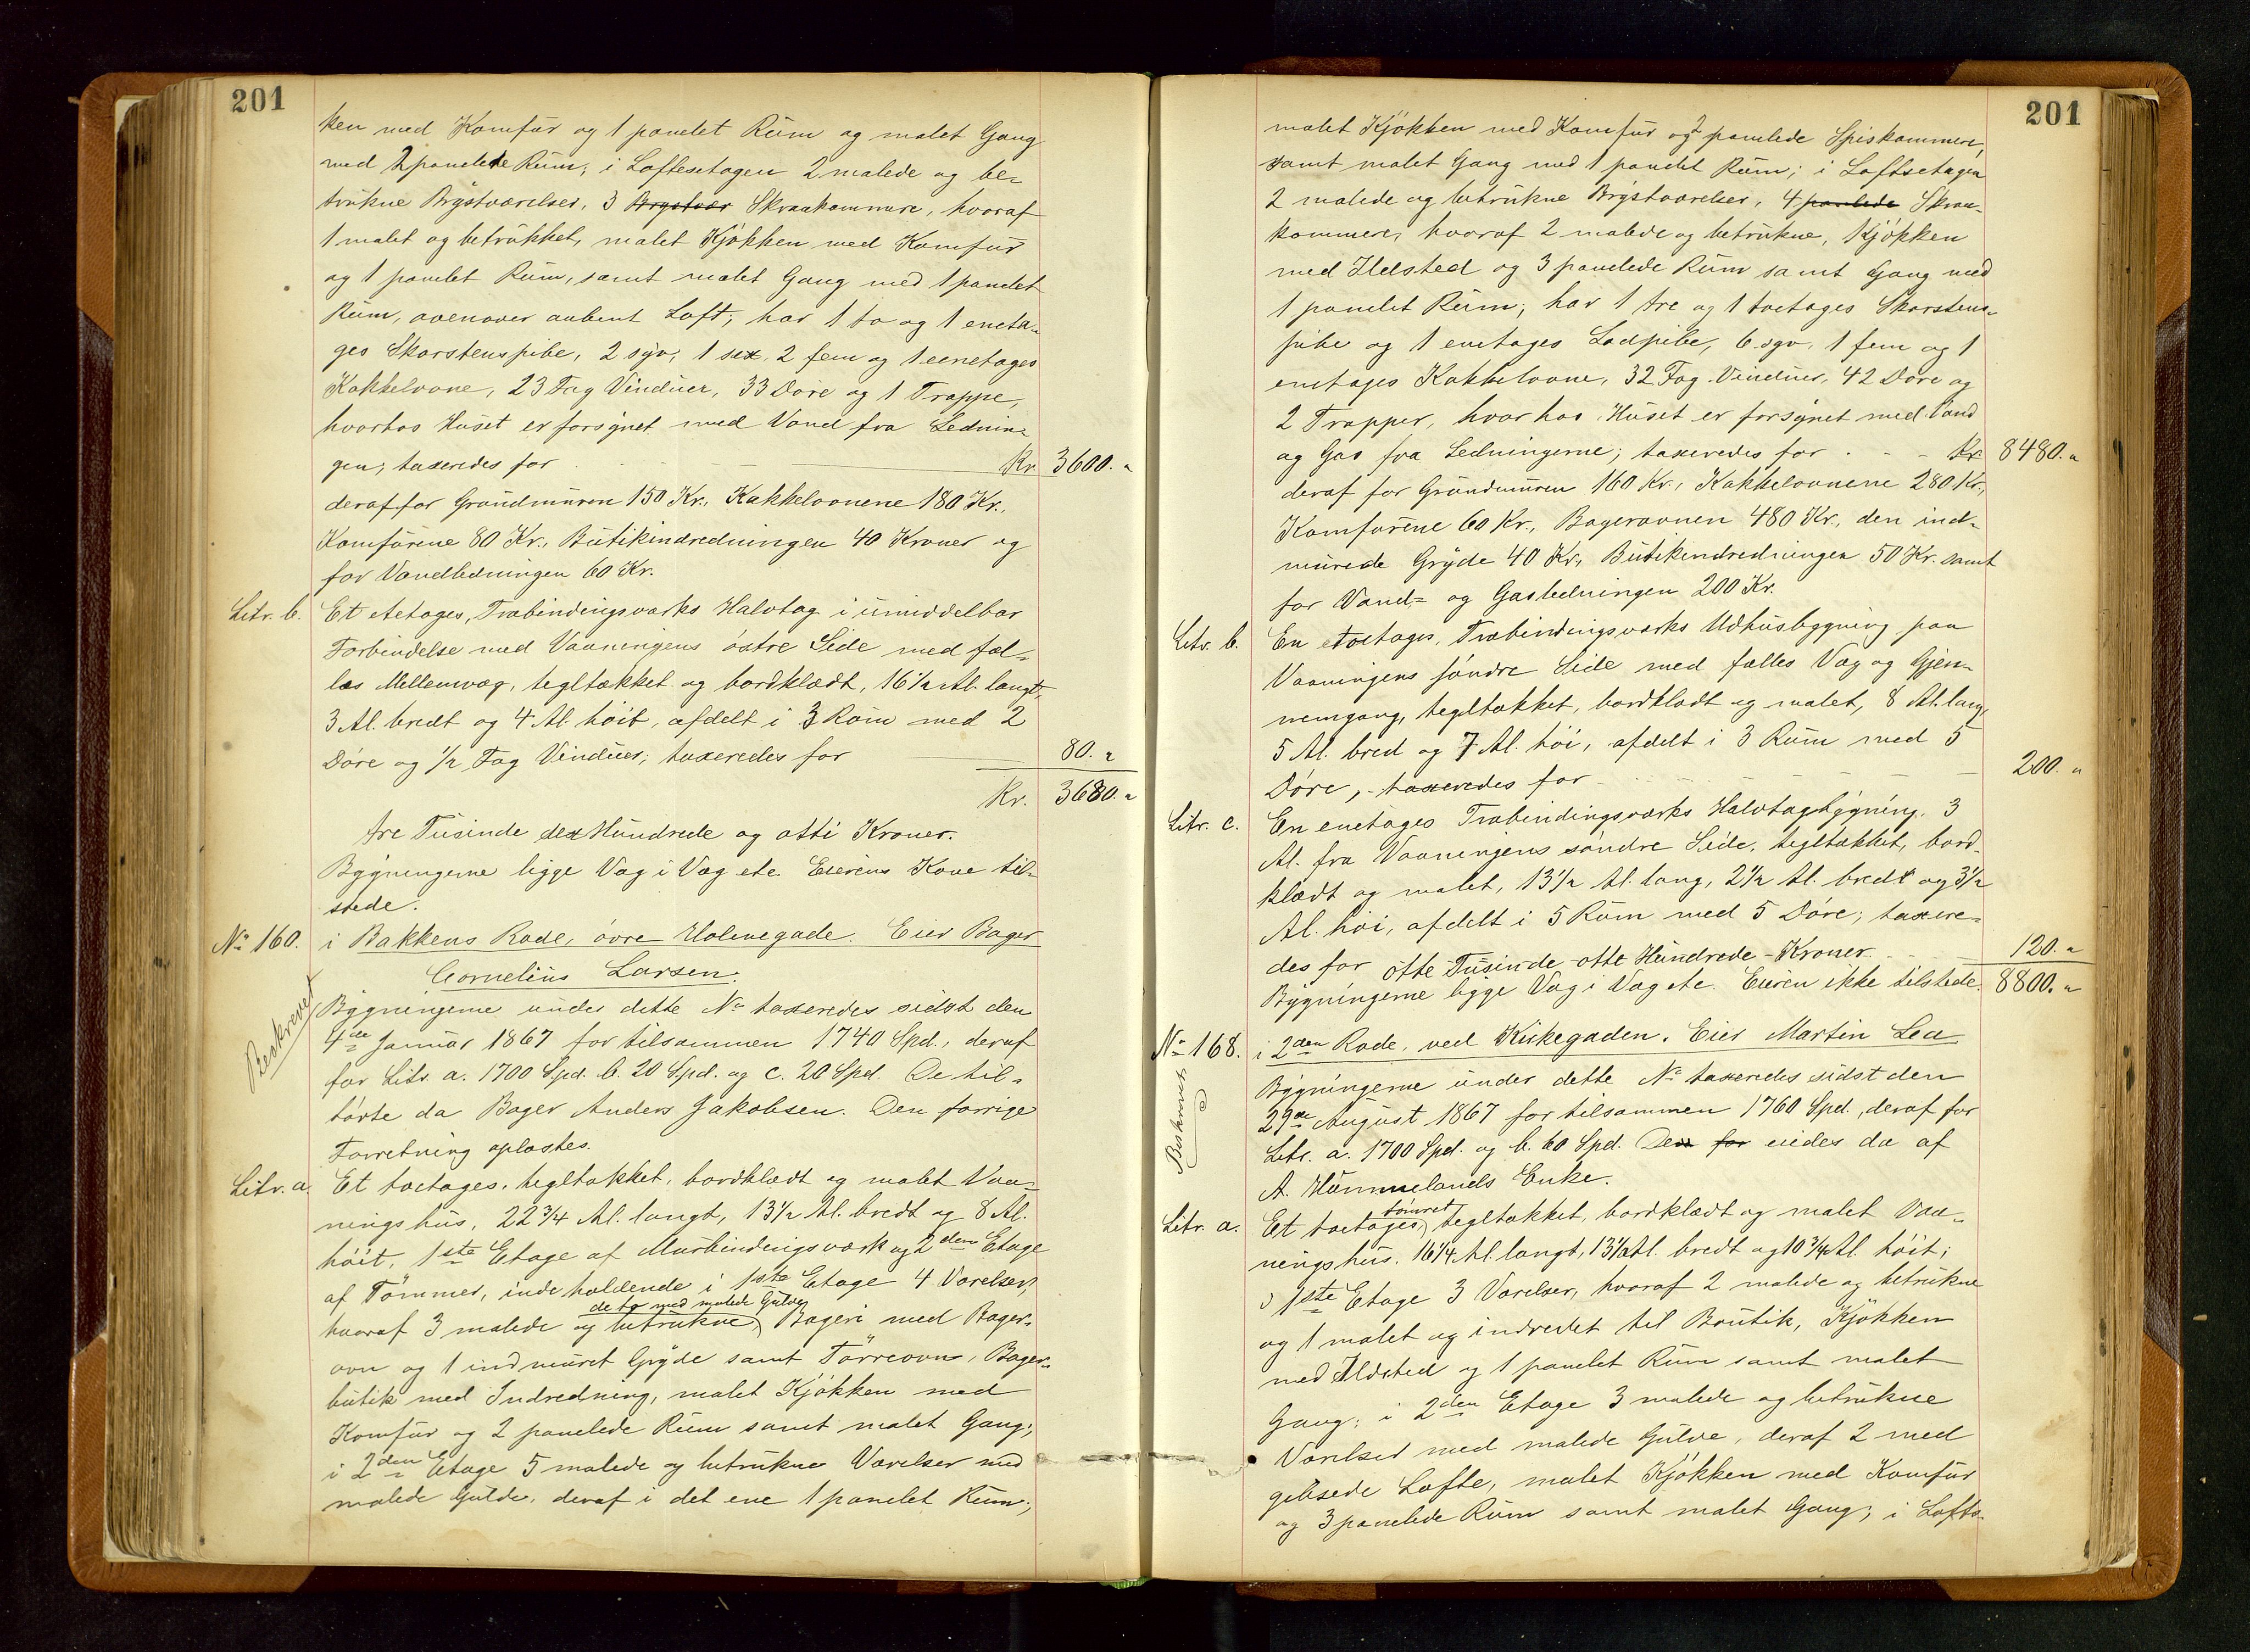 201
ken med Komfur og 1 panelet Rum og malet Gang
med 2 panelede Rum; i Loftesetagen 2 malede og be-
trukne Brystværelser, 3 Brystvær Skraakammere, hvoraf
1 malet og betrukket, malet Kjøkken med Komfur
og 1 panelet Rum, samt malet Gang med 1 panelet
Rum, ovenover aabent Loft; har 1 to og 1 eneta-
ges Skorstenspibe, 2 syv, 1 sex, 2 fem og 1 eenetages
Kakkelovne, 23 Fag Vinduer, 33 Døre og 1 Trappe,
hvorhos Huset er forsynet med Vand fra Lednin-
gen; taxeredes for Kr. 3600.„
deraf for Grundmuren 150 Kr., Kakkelovnene 180 Kr.,
Komfurene 80 Kr., Butikindredningen 40 Kroner og
for Vandledningen 60 Kr.
Litr. b. Et etetages, Træbindingsværks Halvtag i umiddelbar
Forbindelse med Vaaningens østre Side med fæl-
les Mellemvæg, tegltækket og bordklædt, 16 1/2 Al. langt,
3 Al. bredt og 4 Al. høit, afdelt i 3 Rum med 2
Døre og 1/2 Fag Vinduer; taxeredes for 80.„
Kr. 3680.„
tre Tusinde sex Hundrede og otti Kroner.
Bygningerne ligge Væg i Væg etc. Eierens Kone til-
stede.
No 160. i Bakkens Rode, øvre Holmegade. Eier Bager
Cornelius Larsen.
Beskrevet
Bygningerne under dette No taxeredes sidst den
4de Januar 1867 for tilsammen 1740 Spd., deraf
for Litr. a. 1700 Spd. b. 20 Spd. og c. 20 Spd. De til-
hørte da Bager Anders Jakobsen. Den forrige
Forretning oplæstes.
Litr. a. Et toetages, tegltækket, bordklædt og malet Vaa-
ningshus, 22 3/4 Al. langt, 13 1/2 Al. bredt og 8 Al.
høit, 1ste Etage af Murbindingsværk og 2den Etage
af Tømmer, indeholdende i 1ste Etage 4 Værelser,
de to med malede Gulve
hvoraf 3 malede og betrukne, Bageri med Bager-
ovn og 1 indmuret Gryde samt Tørreovn, Bager-
butik med Indredning, malet Kjøkken med
Komfur og 2 panelede Rum samt malet Gang;
i 2den Etage 5 malede og betrukne Værelser med
malede Gulve, deraf i det ene 1 panelet Rum;
201
malet Kjøkken med Komfur og 2 panelede Spiskammere,
samt malet Gang med 1 panelet Rum; i Loftsetagen
2 malede og betrukne Brystværelser, 4 panlede Skraa-
kammere, hvoraf 2 malede og betrukne, Kjøkken
med Ildsted og 3 panelede Rum samt Gang med
1 panelet Rum; har 1 tre og 1 toetages Skorstens-
pibe og 1 enetages Lodpibe, 6 syv, 1 fem og 1
enetages Kakkelovne, 32 Fag Vinduer, 42 Døre og
2 Trapper, hvorhos Huset er forsynet med Vand
og Gas fra Ledningerne; taxeredes for Kr. 8480.„
deraf for Grundmuren 160 Kr., Kakkelovnene 280 Kr.,
Komfurene 60 Kr., Bagerovnen 480 Kr., den ind-
murede Gryde 40 Kr., Butikindredningen 50 Kr. samt
for Vand- og Gasledningen 200 Kr.
Litr. b. En toetages, Træbindingsværks Udhusbygning paa
Vaaningens søndre Side med fælles Væg og Gjen-
nemgang, tegltækket, bordklædt og malet, 8 Al. lang,
5 Al. bred og 7 Al. høi, afdelt i 3 Rum med 5
Døre, taxeredes for 200.„
Litr. c. En enetages Træbindingsværks Halvtagbygning, 3
Al. fra Vaaningens søndre Side, tegltækket, bord-
klædt og malet, 13 1/2 Al. lang, 2 1/2 Al. bredt og 3 1/2
Al. høi, afdelt i 5 Rum med 5 Døre; taxere-
des for 120.„
otte Tusinde otte Hundrede Kroner.
Bygningerne ligge Væg i Væg etc. Eieren ikke tilstede. 8800.„
No 168. i 2den Rode, ved Kirkegaden. Eier Martin Lea
Beskrevet
Bygningerne under dette No taxeredes sidst den
29de August 1867 for tilsammen 1760 Spd., deraf for
Litr. a. 1700 Spd. og b. 60 Spd. Den for eiedes da af
A. Hommelands Enke.
tømret
Litr. a. Et toetages, tegltækket, bordklædt og malet Vaa-
ningshus, 16 1/4 Al. langt, 13 1/2 Al. bredt og 10 3/4 Al. høit;
i 1ste Etage 3 Værelser, hvoraf 2 malede og betrukne
og 1 malet og indredet til Boutik, Kjøkken
med Ildsted og 1 panelet Rum samt malet
Gang; i 2den Etage 3 malede og betrukne
Værelser med malede Gulve, deraf 2 med
gibsede Lofte, malet Kjøkken med Komfur
og 3 panelede Rum samt malet Gang; i Lofts-